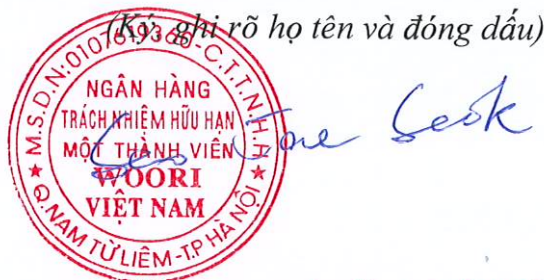 (Ký, ghi rõ họ tên và đóng dấu)
M.S.D.N:0107679360-C.T.T.N.H.H
NGÂN HÀNG
TRÁCH NHIỆM HỮU HẠN
MỘT THÀNH VIÊN
WOORI
VIỆT NAM
★ Q.NAM TỪ LIÊM-T.P HÀ NỘI ★
Jone Seok